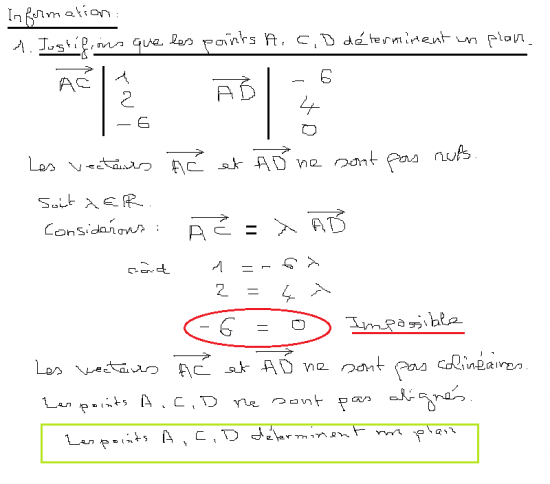 Information:
1. Justifions que les points A, C, D déterminent un plan.
AC | 1 2 -6 AD | -6 4 0
Les vecteurs AC et AD ne sont pas nuls.
Soit λ ∈ ℝ.
Considérons : AC = λ AD
1 = -6 λ
2 = 4 λ
-6 = 0 Impossible
Les vecteurs AC et AD ne sont pas colinéaires.
Les points A, C, D ne sont pas alignés.
Les points A, C, D déterminent un plan